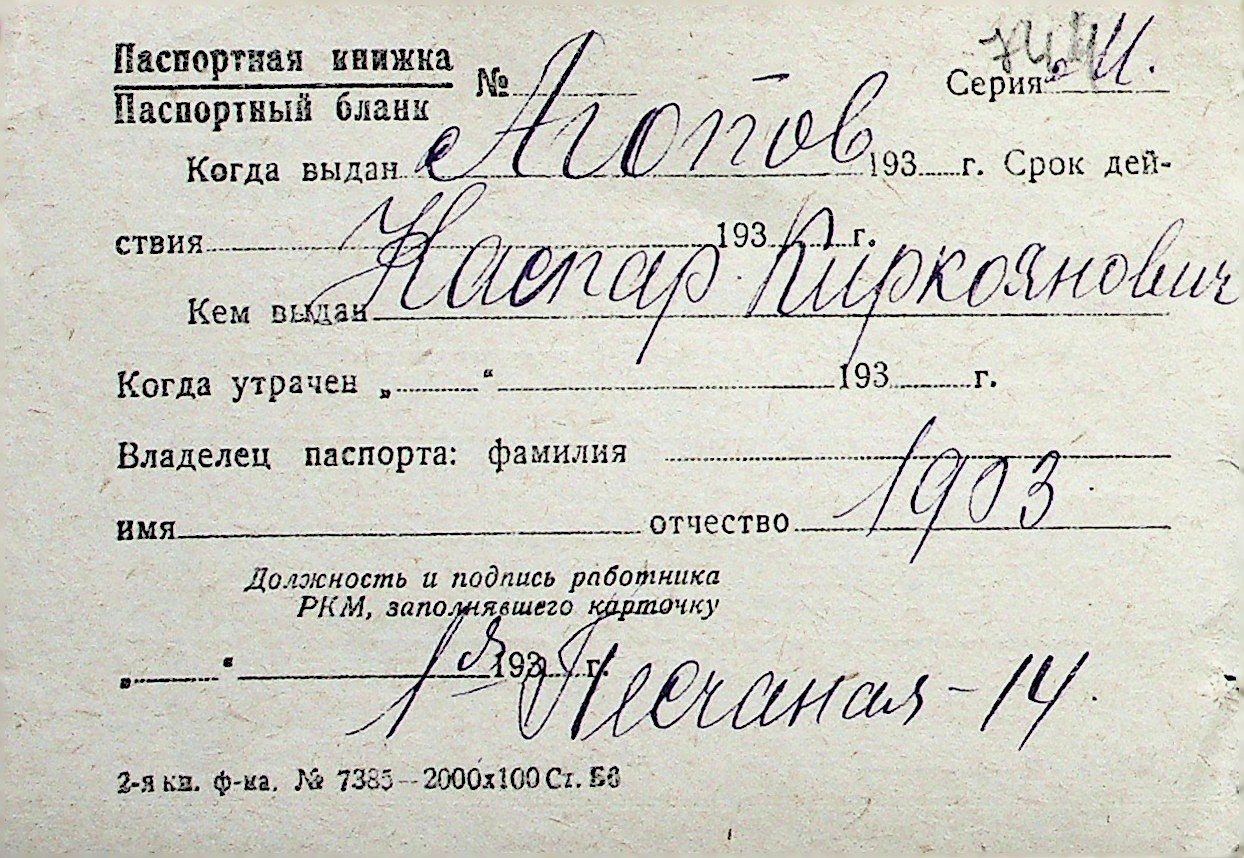 Паспортная книжка
Паспортный бланк
№ Серия И.
Когда выдан Агопов 193 г. Срок дей-
ствия 193 г.
Каспар Киркоянович
Кем выдан
Когда утрачен „ “ 193 г.
Владелец паспорта: фамилия
1903
имя отчество
Должность и подпись работника
РКМ, заполнявшего карточку
„ “ 193 г.
1я Песчаная-14.
2-я кн. ф-ка. № 7385—2000х100 Ст. Бб